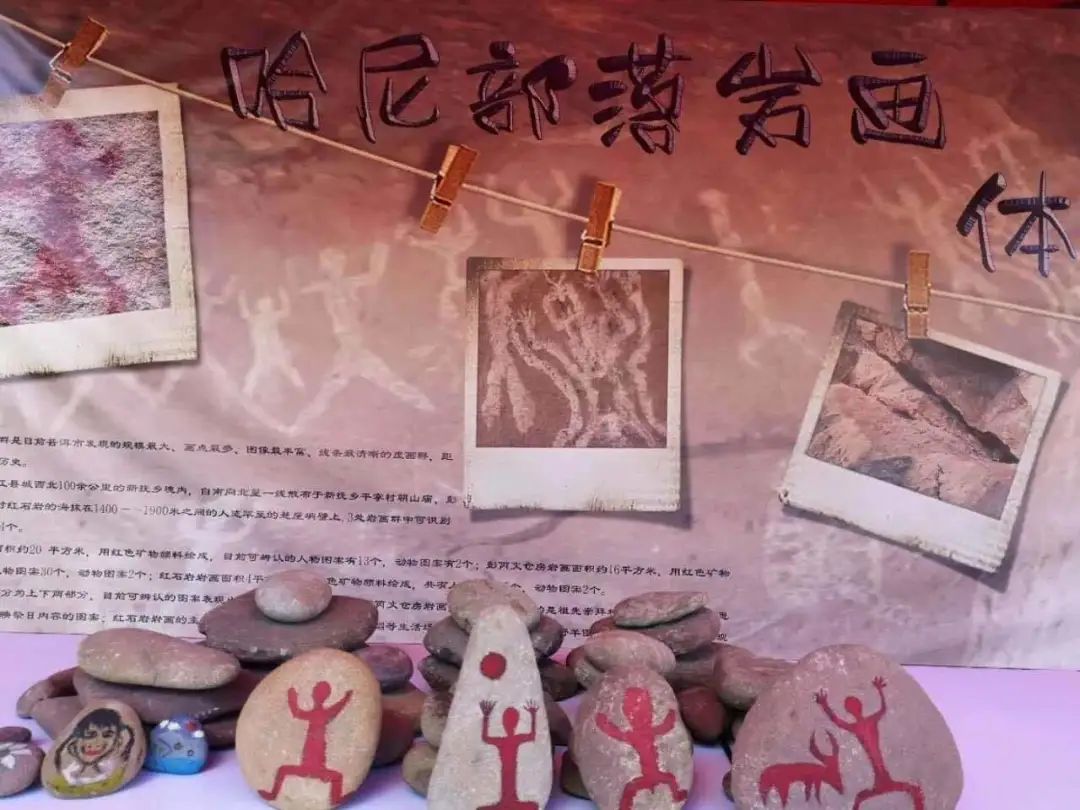 哈尼部落岩画
体
群是目前普洱市发现的规模最大、画点最多、图像最丰富、线条最清晰的崖画群，距
历史。
江县城西北100余公里的新抚乡境内，自南向北呈一线散布于新抚乡平掌村朝山庙、彭
村红石岩的海拔在1400——1900米之间的人迹罕至的悬崖峭壁上，3处岩画群中可识别
个。
面积约20平方米，用红色矿物颜料绘成，目前可辨认的人物图案有13个，动物图案有2个；彭两文仓房岩画面积约16平方米，用红色矿物
人物图案30个，动物图案2个；红石岩岩画面积4平 色矿物颜料绘成，共有 个，动物图案2个。
分为上下两部分，目前可辨认的图案表现 两文仓房岩画 的是祖先崇拜
映祭日内容的图案；红石岩岩画的主 等生活场